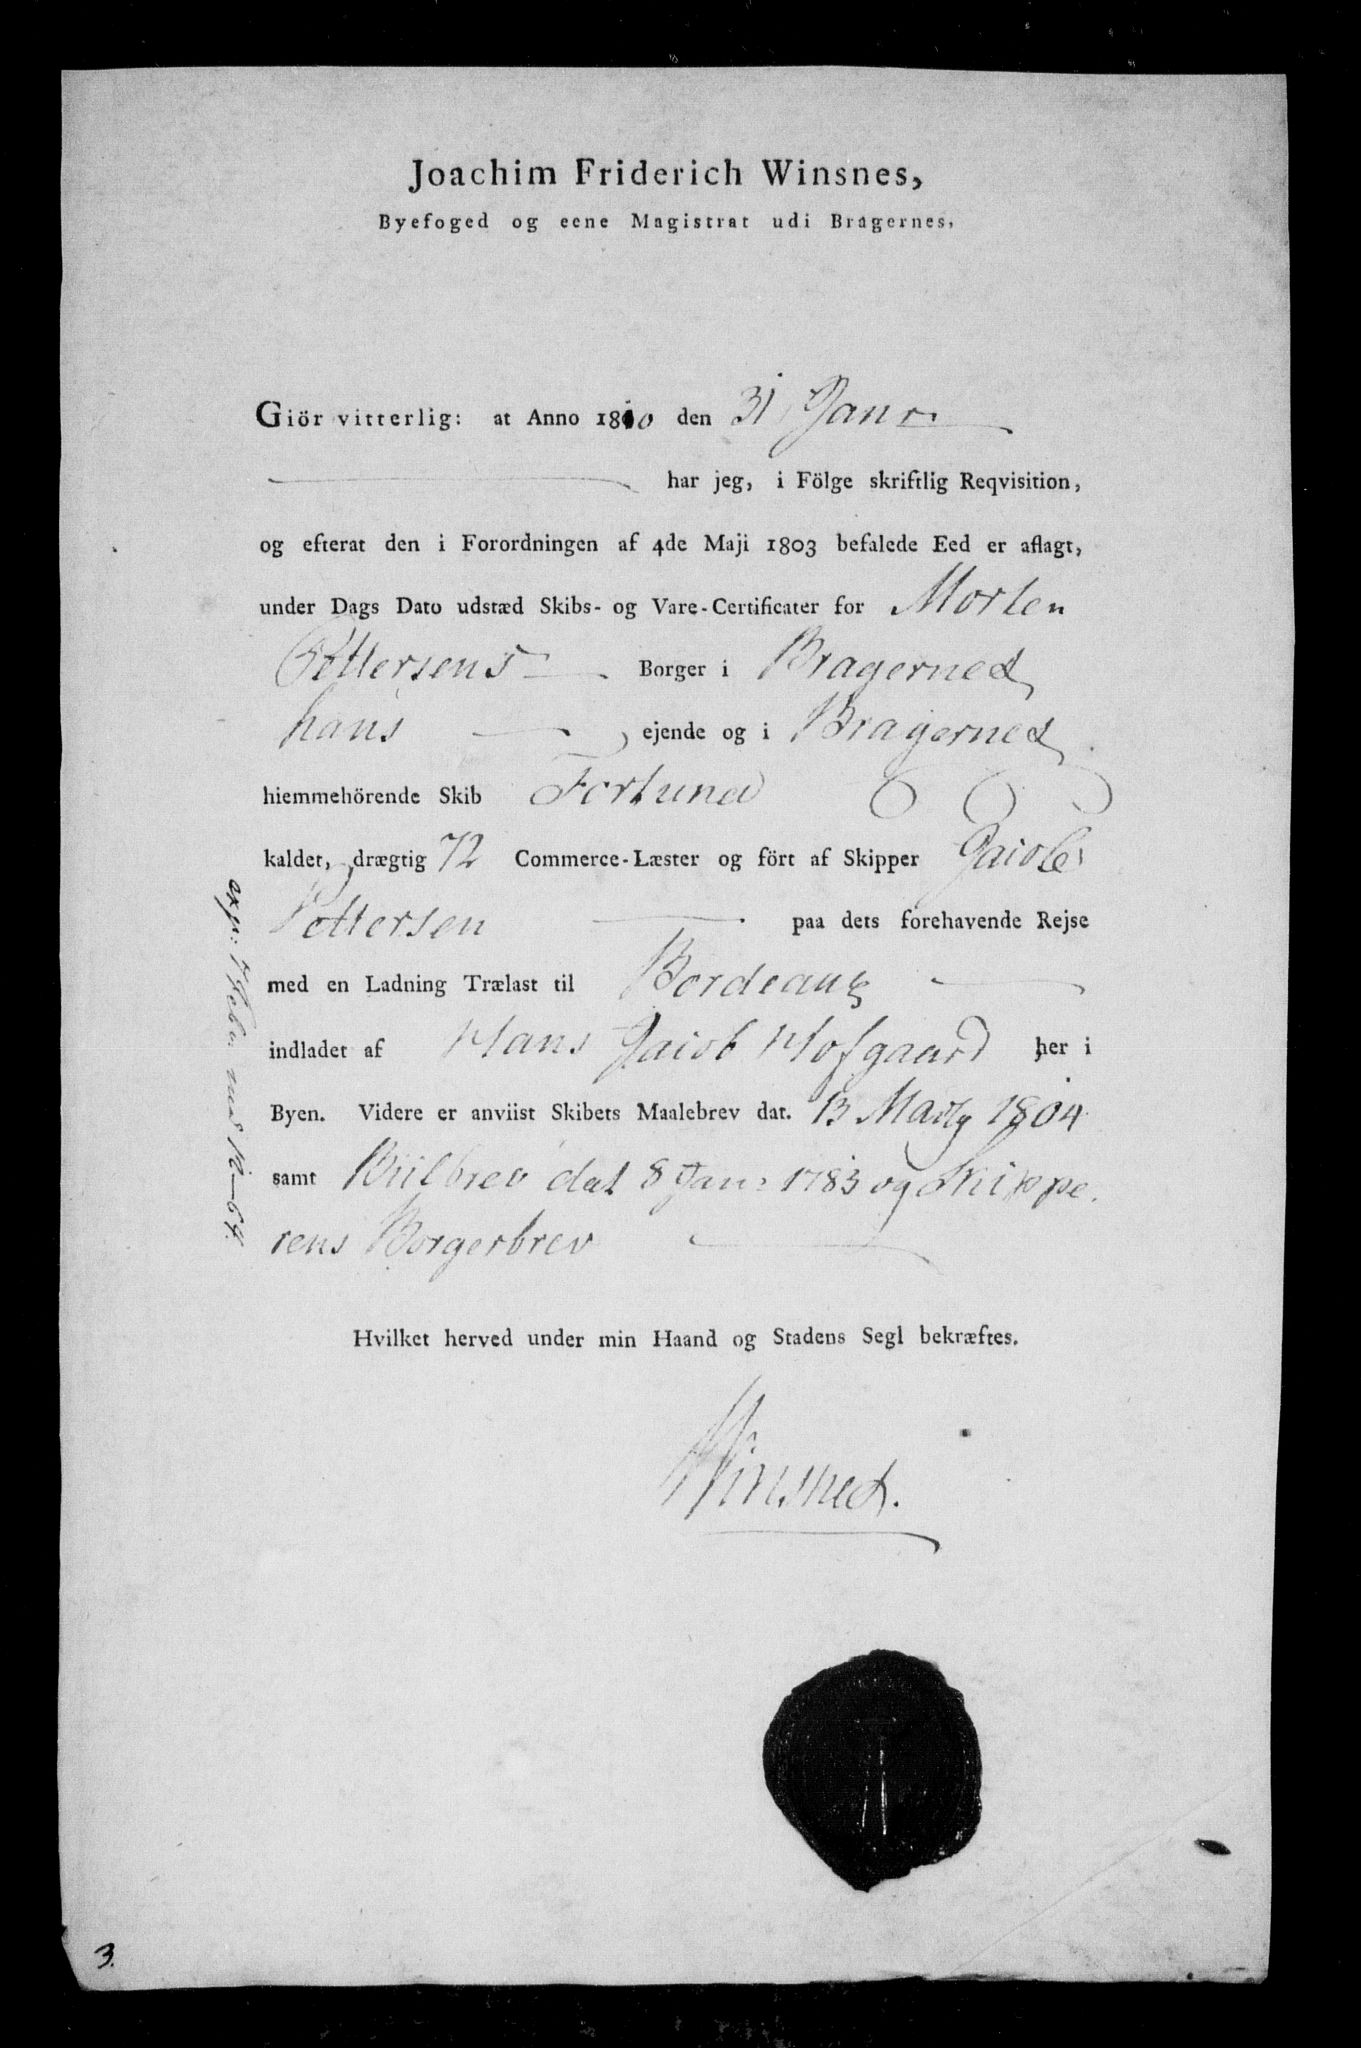 Joachim Friderich Winsnes,
Byefoged og eene Magistrat udi Bragernes,
Giör vitterlig: at Anno 1810 den 31 Janr.
har jeg, i Fölge skriftlig Reqvisition,
og efterat den i Forordningen af 4de Maji 1803 befalede Eed er aflagt,
under Dags Dato udstæd Skibs- og Vare-Certificater for Morten
Pettersens Borger i Bragernes
hans ejende og i Bragernes
hiemmehörende Skib Fortuna
kaldet, drægtig 72 Commerce-Læster og fört af Skipper Jaicob
Pettersen paa dets forehavende Rejse
med en Ladning Trælast til Bordeaux
indladet af Hans Jaicob Hofgaard her i
Byen. Videre er anviist Skibets Maalebrev dat. 13 Martz 1804
samt Biilbrev dat 8 Jan: 1783 og Skippe
rens Borgerbrev
Hvilket herved under min Haand og Stadens Segl bekræftes.
Winsnes.
exp: 1 Feb. med No 64.
3.